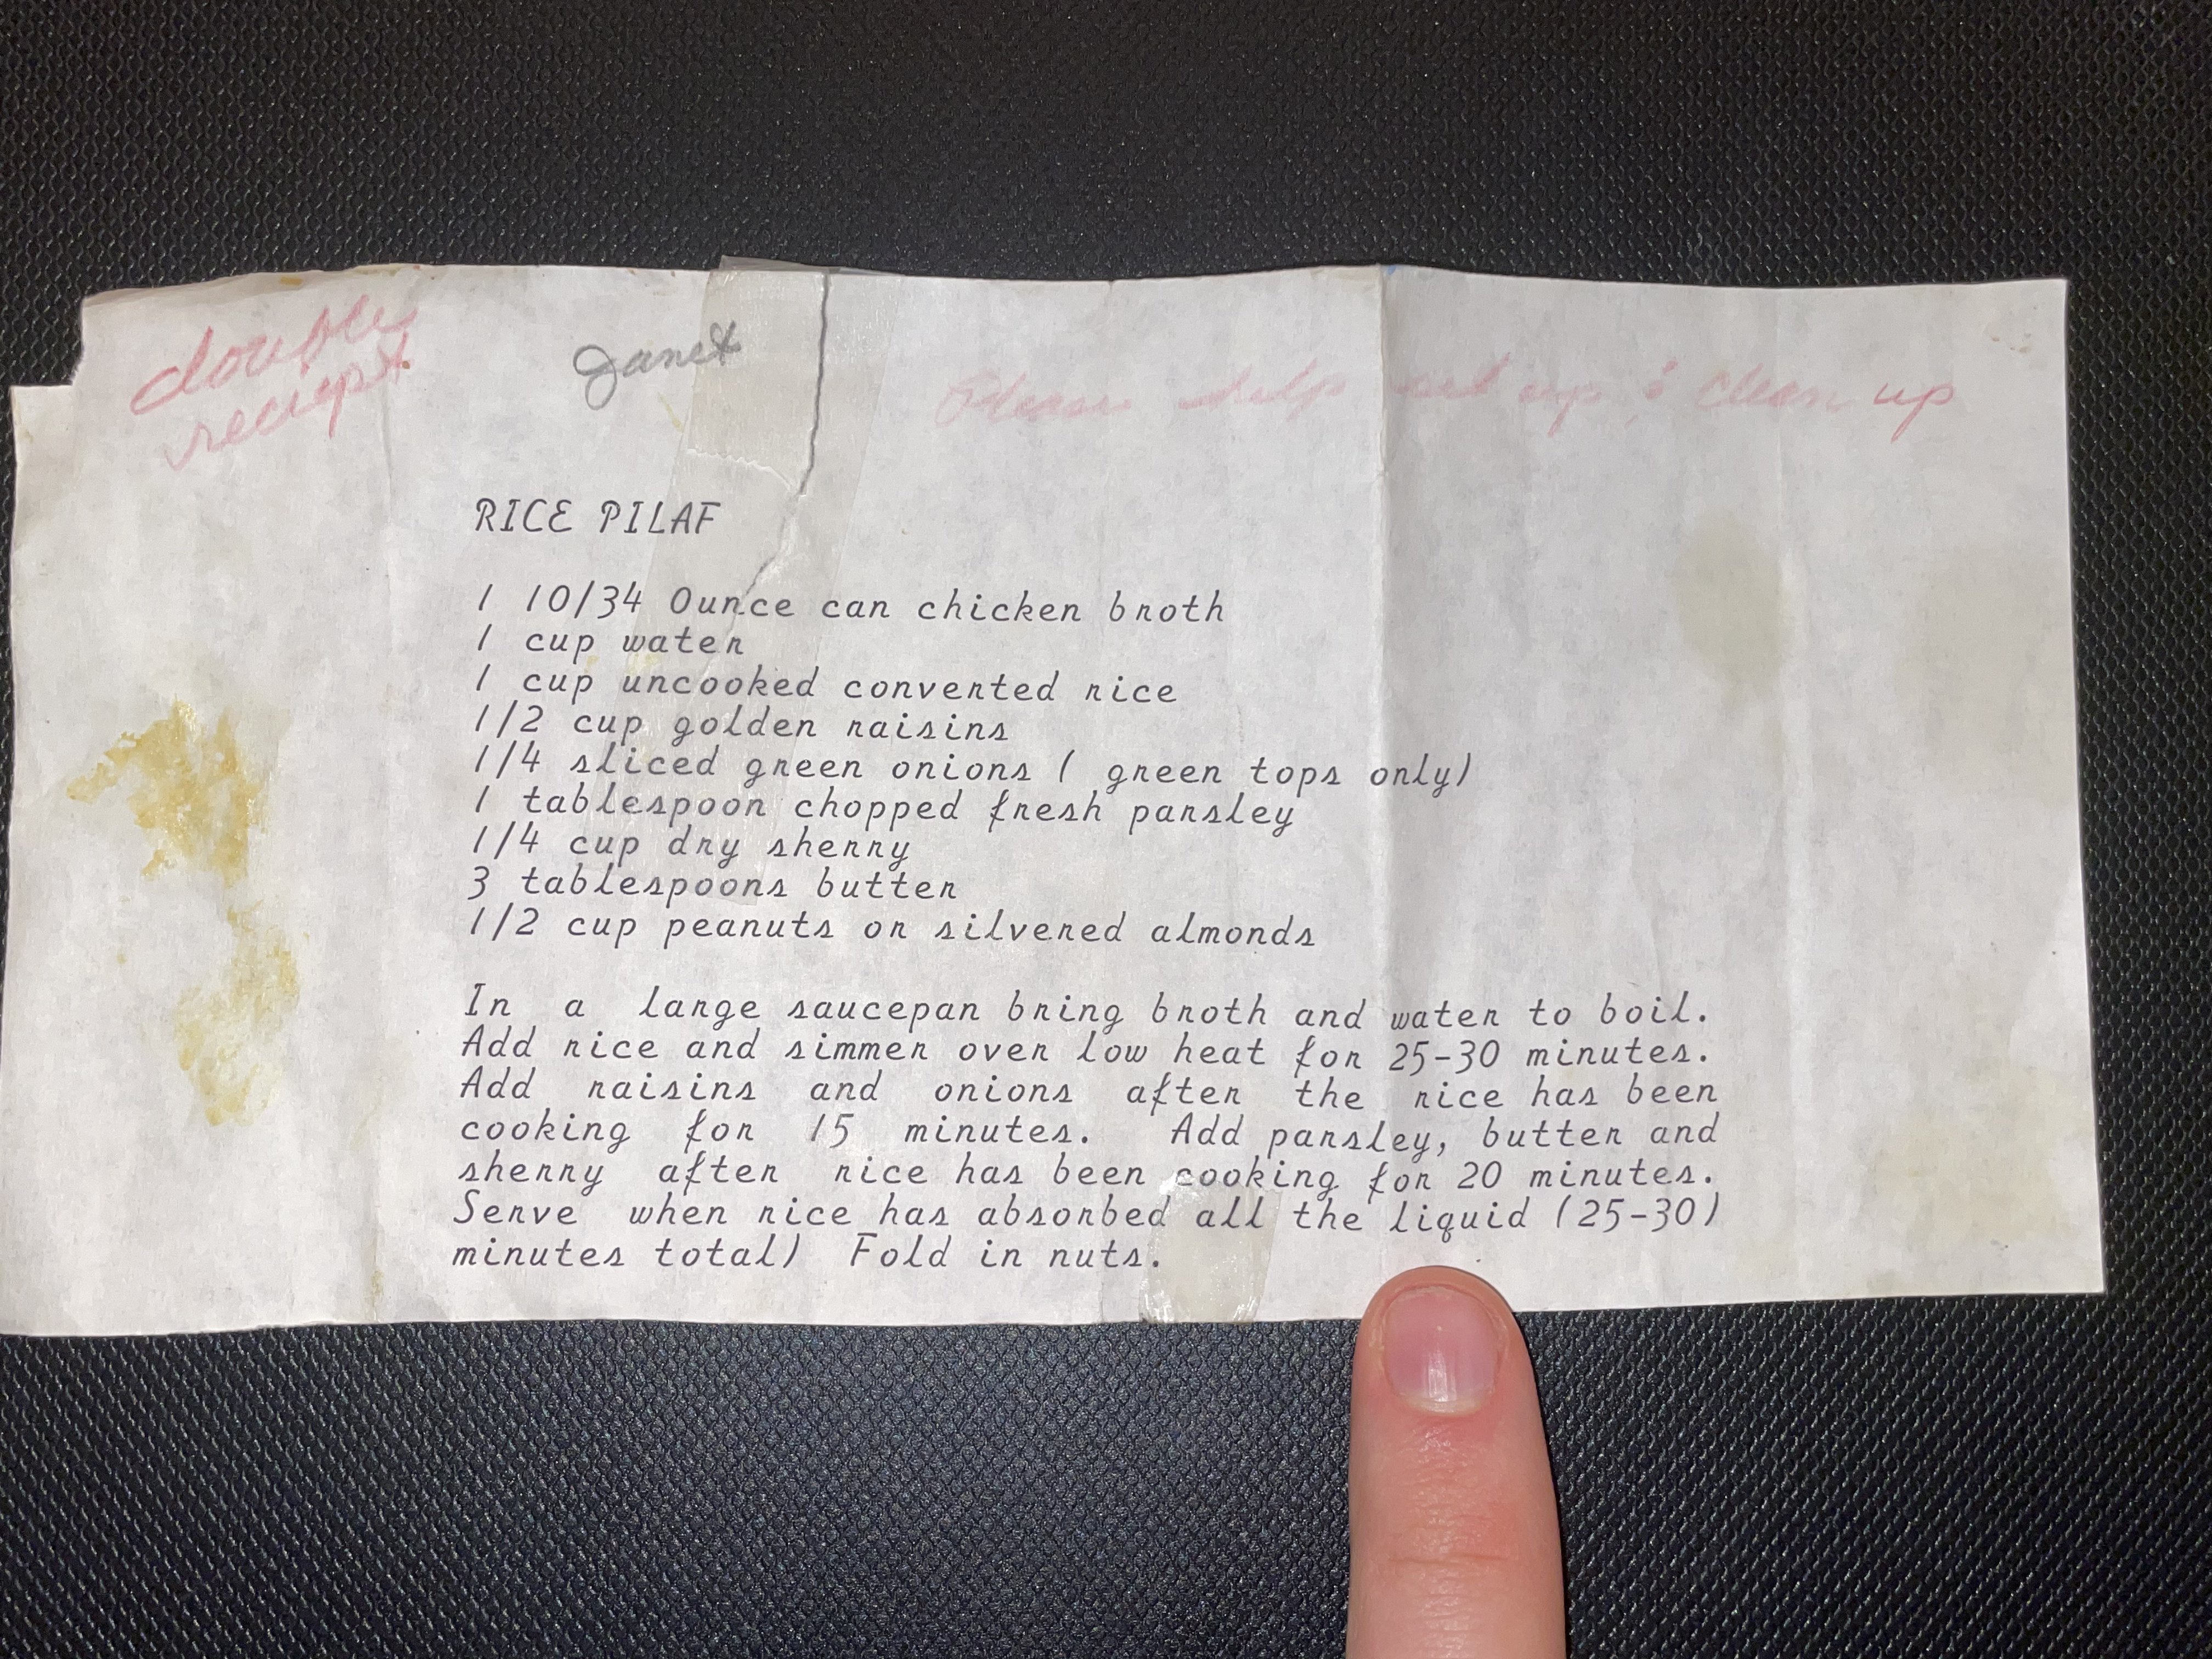 double
reciept
Janet
Please help set up & clean up
RICE PILAF
1 10/34 Ounce can chicken broth
1 cup water
1 cup uncooked converted rice
1/2 cup golden raisins
1/4 sliced green onions ( green tops only)
1 tablespoon chopped fresh parsley
1/4 cup dry sherry
3 tablespoons butter
1/2 cup peanuts or silvered almonds
In a large saucepan bring broth and water to boil.
Add rice and simmer over low heat for 25-30 minutes.
Add raisins and onions after the rice has been
cooking for 15 minutes. Add parsley, butter and
sherry after rice has been cooking for 20 minutes.
Serve when rice has absorbed all the liquid (25-30)
minutes total) Fold in nuts.